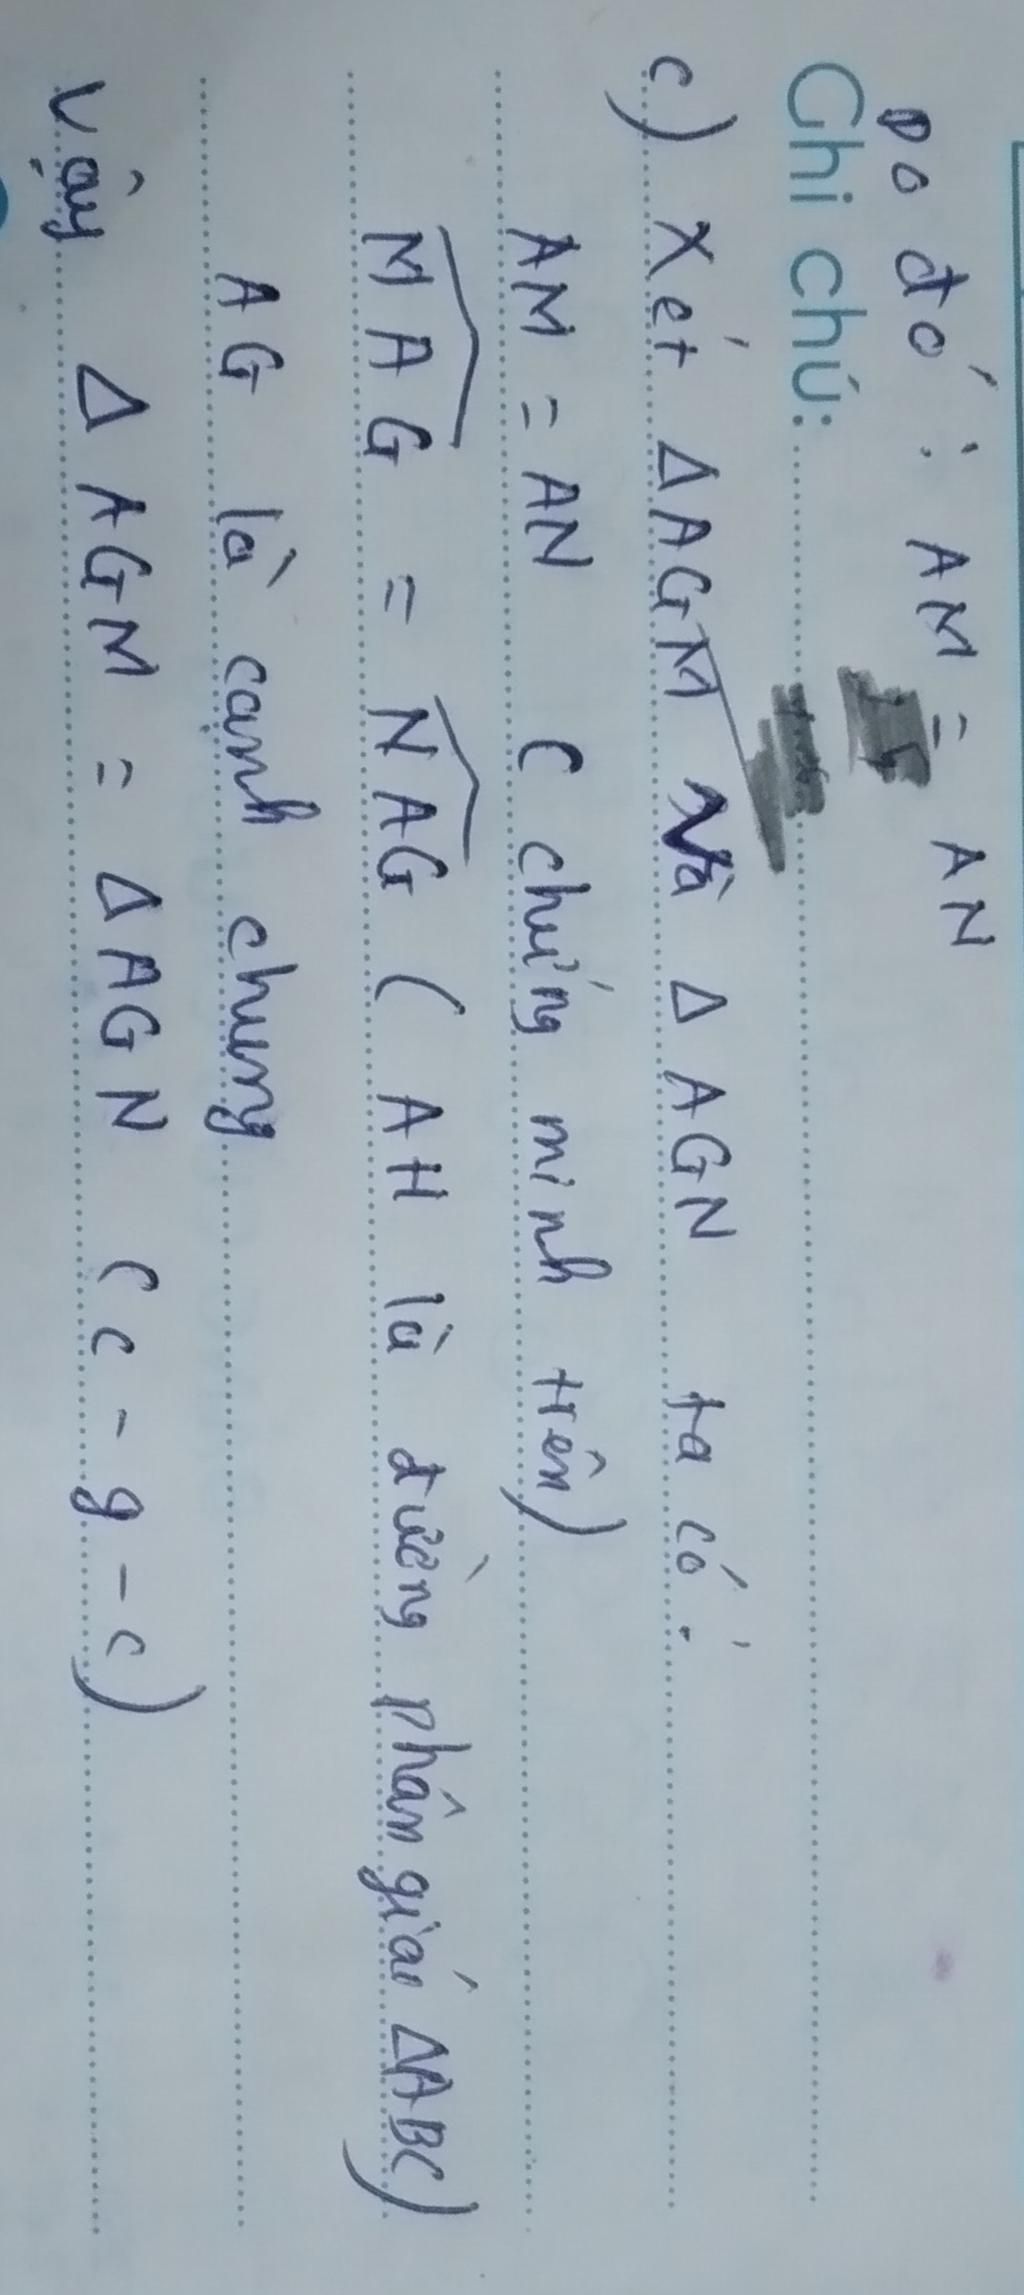 Do đó : AM = AN
Ghi chú:
c) Xét Δ AGM Và Δ AGN ta có :
AM = AN ( chứng minh trên)
MAG = NAG ( AH là đường phân giác ΔABC)
AG là cạnh chung
Vậy Δ AGM = Δ AGN ( c - g - c)